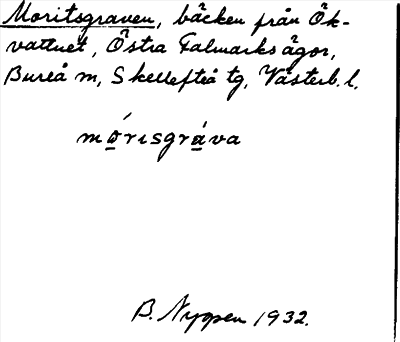 Moritsgraven, bäcken från Ök-
vattnet, Östra Falmarks ägor,
Bureå m, Skellefteå tg, Västerb. l.
mó̱rɪsgrá̱va
B. Nygren 1932.